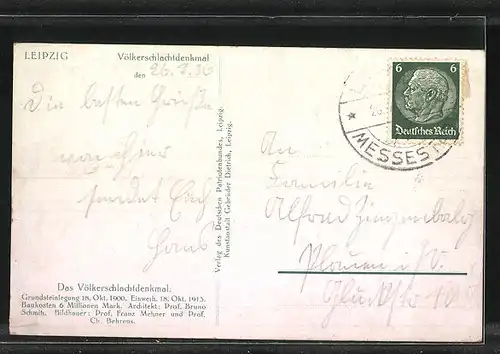 LEIPZIG Völkerschlachtdenkmal
den 26.7.36
Die besten Grüße
sendet Euch
Hans
Das Völkerschlachtdenkmal.
Grundsteinlegung 18. Okt. 1900. Einweih. 18. Okt. 1913.
Baukosten 6 Millionen Mark. Architekt: Prof. Bruno
Schmitz. Bildhauer: Prof. Franz Metzner und Prof.
Ch. Behrens.
Verlag des Deutschen Patriotenbundes, Leipzig.
Kunstanstalt Gebrüder Dietrich, Leipzig.
6 6
Deutsches Reich
* MESSEST
An
Familie
Alfred
Plauen i. V.